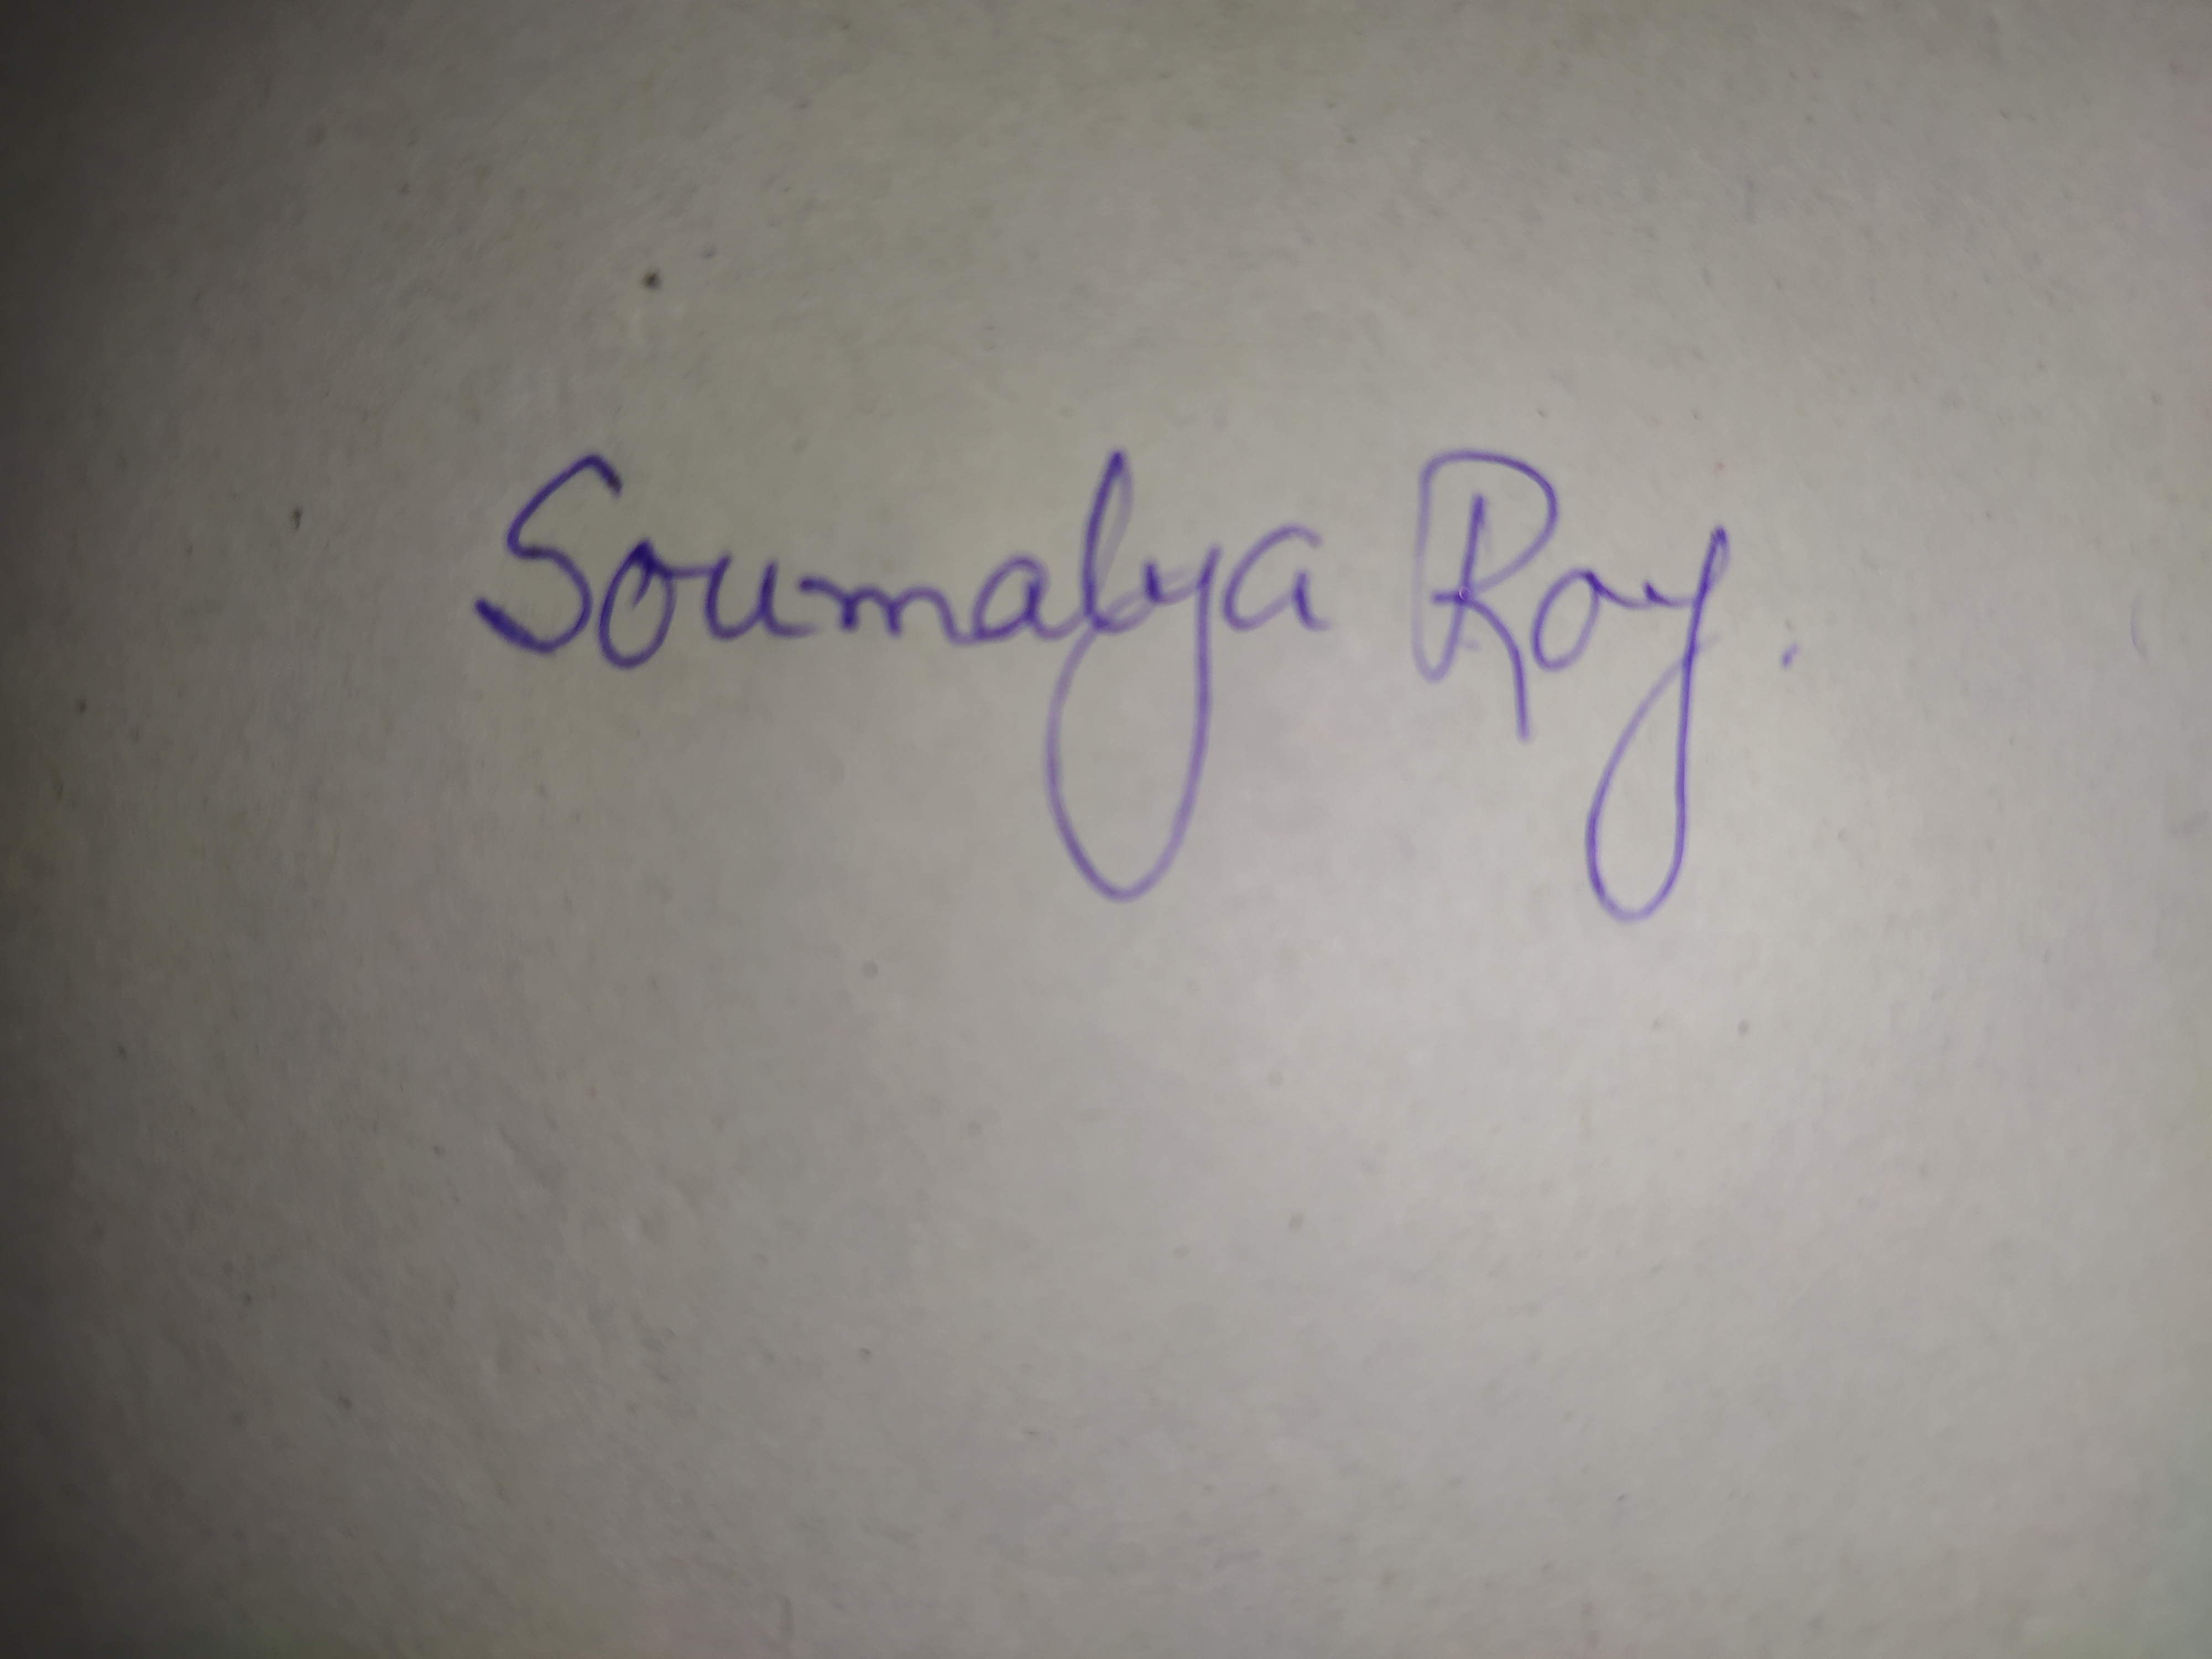 Soumalya Roy.